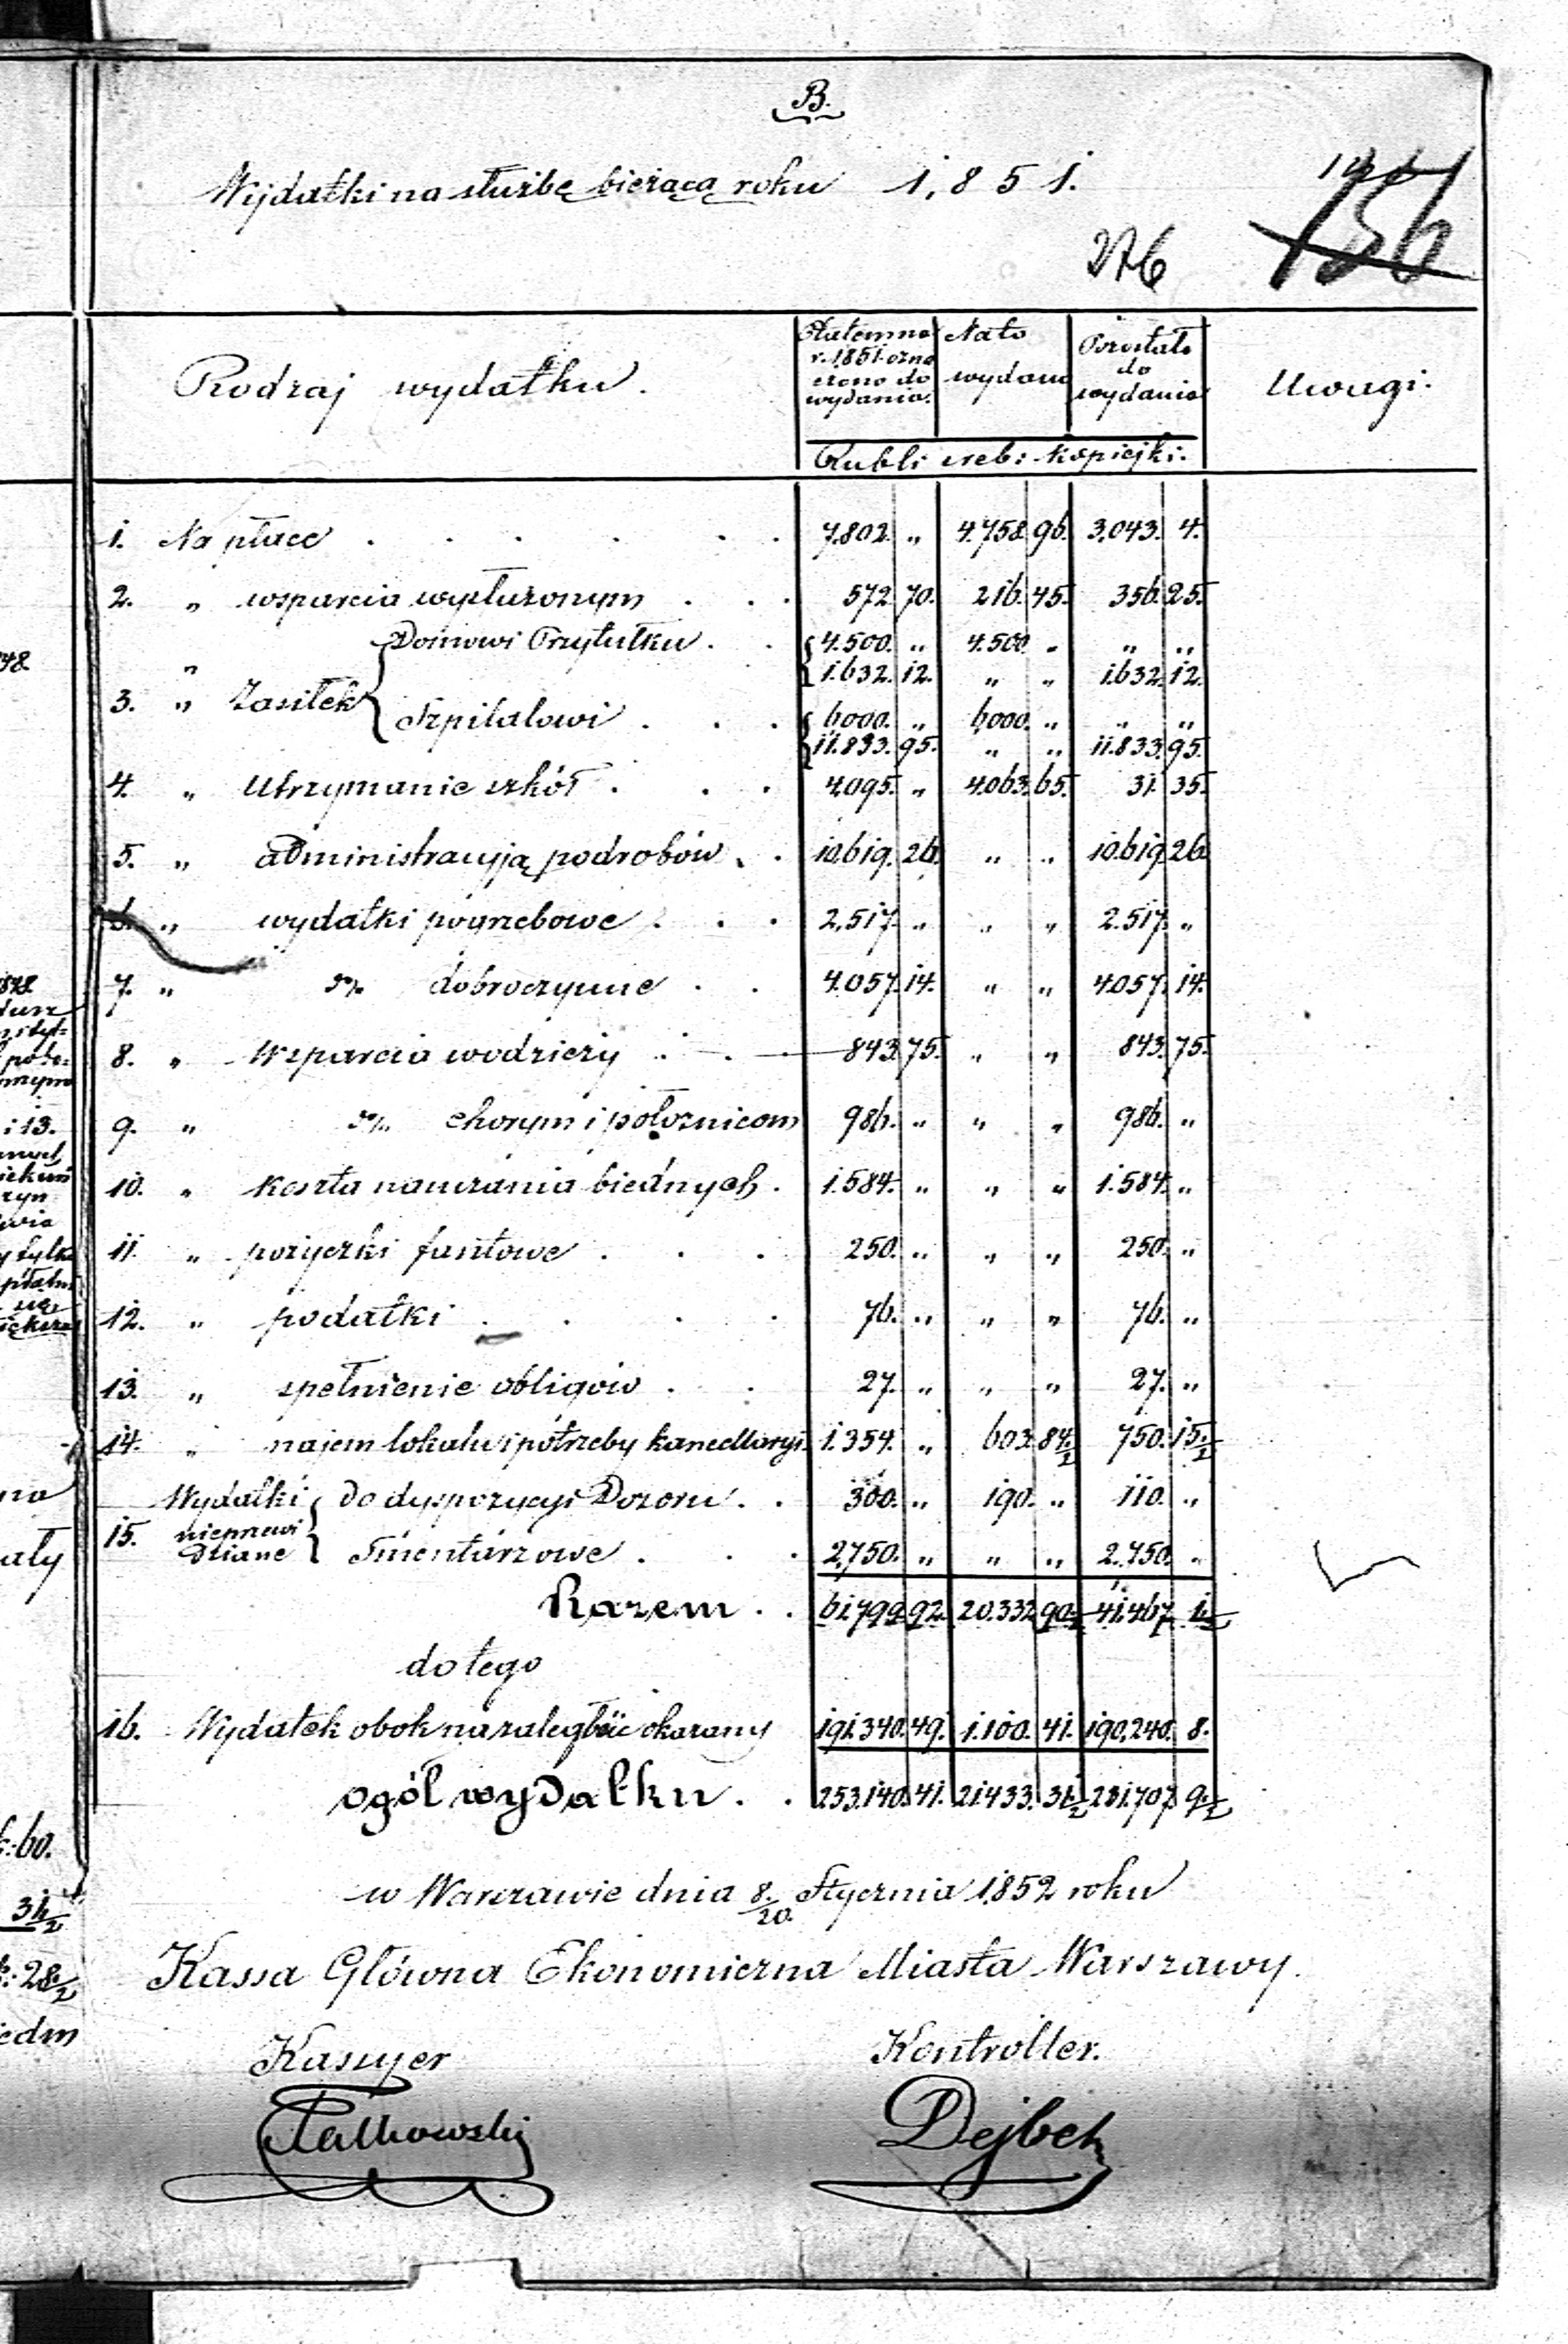 B.
Wydatki na służbę bieżącą roku 1,851.
156
276
Rodzaj wydatku.
Etatem na r. 1851 ozna czono do wydania.
Na to wydano
Pozostało do wydania
Uwagi.
Rubli sreb: kopiejki.
1. Na płace . . . . . . 7.802. „ 4.758. 96. 3,043. 4.
2. „ wsparcia wysłużonym . . . 572. 70. 216. 45. 356. 25.
Domowi Przytułku . . 4.500. „ 4.500. „ „ „
„ 1.632. 12. „ „ 1.632. 12.
3. „ Zasiłek
Szpitalowi . . . 6000. „ 6,000. „ „ „
11.833. 95. „ „ 11.833. 95.
4. „ Utrzymanie szkół . . . 4.095. „ 4.063. 65. 31. 35.
5. „ administracyją podrobów . . 10.619. 26. „ „ 10.619. 26.
6. „ wydatki pogrzebowe . . . 2.517. „ „ „ 2.517. „
7. „ dobroczynne . . 4.057. 14. „ „ 4.057. 14.
8. „ Wsparcia w odzieży . . 843. 75. „ „ 843. 75.
9. „ chorym i położnicom 986. „ „ „ 986. „
10. „ koszta nauczania biednych . 1.584. „ „ „ 1.584. „
11. „ pożyczki fantowe . . . 250. „ „ „ 250. „
12. „ podatki . . . . 76. „ „ „ 76. „
13. „ spełnienie obligów . . 27. „ „ „ 27. „
14. „ najem lokalu i potrzeby kancellaryi. 1.354. „ 603. 84.½ 750. 15.½
Wydatki do dyspozycyi Dozoru . . 300. „ 190. „ 110. „
15. nieprzewi
dziane Smentarzowe . . . 2,750. „ „ „ 2.750. „
Razem . . 61.799. 92. 20.332. 90.½ 41.467. 1.½
do tego
16. Wydatek obok na zaległość okazany 191.340. 49. 1.100. 41. 190.240. 8.
ogół wydatku . . 253.140. 41. 21.433. 31.½ 231.707. 9.½
w Warszawie dnia 8/20. Stycznia 1,852 roku
Kassa Główna Ekonomiczna Miasta Warszawy.
Kassyer
Kontroller.
Dejbel